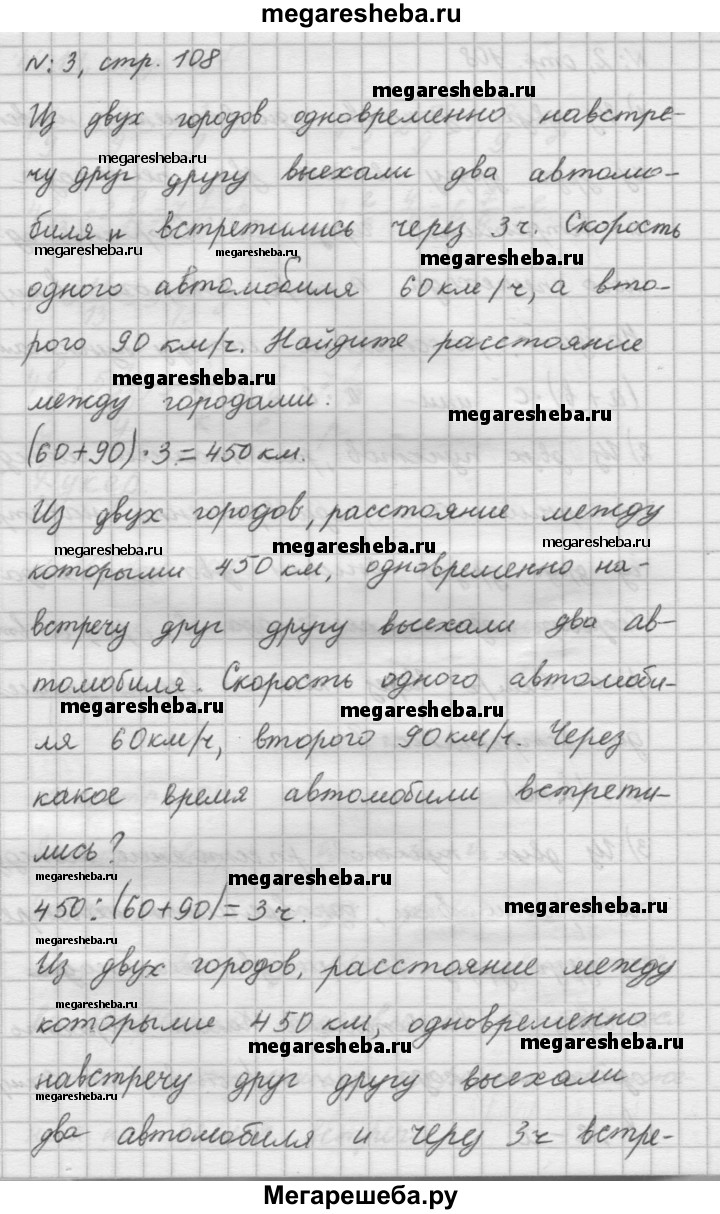 megaresheba.ru
№ 3, стр. 108
megaresheba.ru
Из двух городов одновременно навстре-
megaresheba.ru
чу друг другу выехали два автомо-
биля и встретились через 3ч. Скорость
megaresheba.ru megaresheba.ru megaresheba.ru
одного автомобиля 60км/ч, а вто-
рого 90км/ч. Найдите расстояние
megaresheba.ru
между городами.
megaresheba.ru
(60+90)·3=450км.
Из двух городов, расстояние между
megaresheba.ru megaresheba.ru megaresheba.ru
которыми 450км, одновременно на-
встречу друг другу выехали два ав-
томобиля. Скорость одного автомоби-
megaresheba.ru megaresheba.ru
ля 60км/ч, второго 90км/ч. Через
какое время автомобили встрети-
лись?
megaresheba.ru megaresheba.ru
450:(60+90)=3ч.
megaresheba.ru
megaresheba.ru
Из двух городов, расстояние между
megaresheba.ru
которыми 450км, одновременно
megaresheba.ru megaresheba.ru
навстречу друг другу выехали
megaresheba.ru
два автомобиля и черу 3ч встре-
Мегарешеба.ру